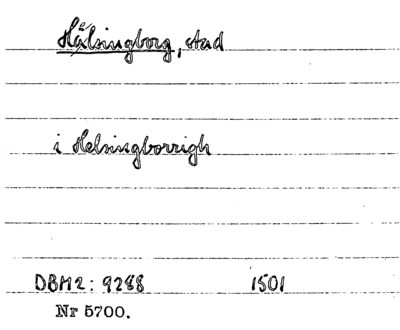 Hälsingborg, stad
i Helsingborrigh
DBM2: 9288 1501
Nr 5700.